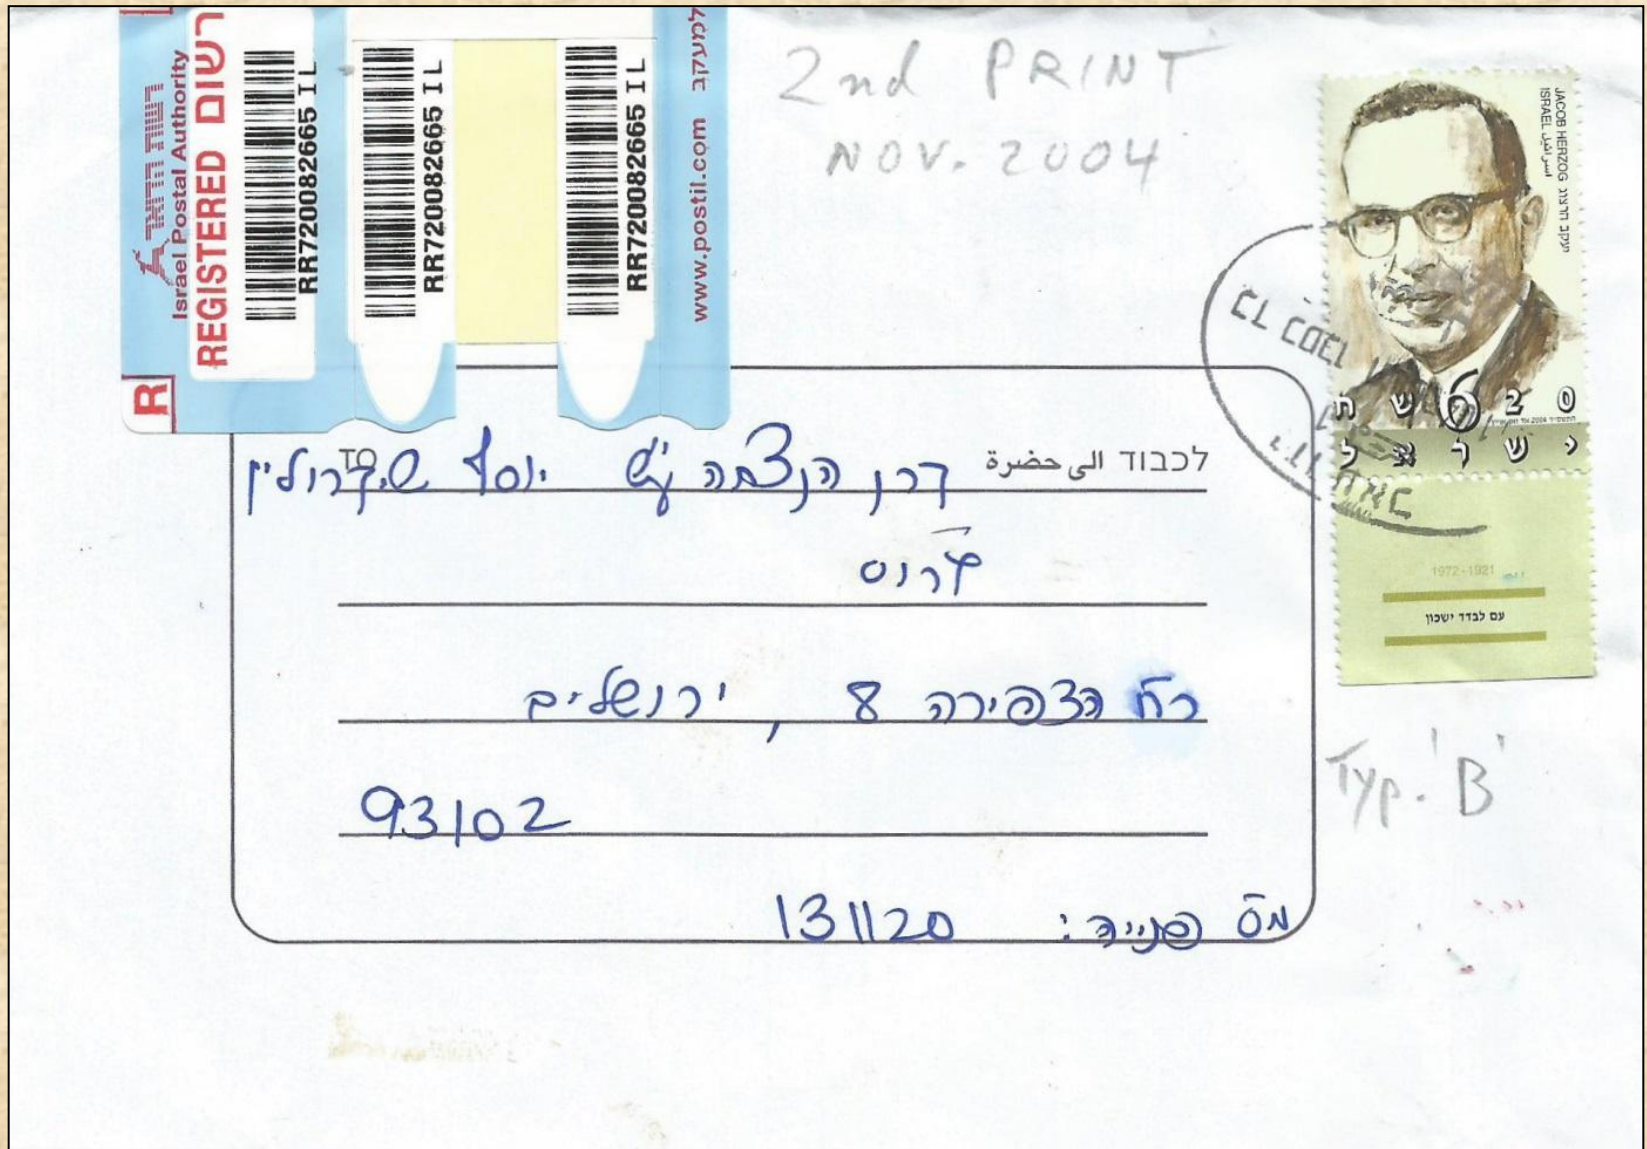 רשות הדואר
Israel Postal Authority
REGISTERED רשום
RR720082665 I L
RR720082665 I L
RR720082665 I L
www.postil.com למעקב
R
2nd PRINT
NOV. 2004
JACOB HERZOG יעקב הרצוג
ISRAEL اسرائيل
620 ש ח
ישראל
1972-1921
עם לבדד ישכון
לכבוד الى حضرة TO
קרן הנצחה ע"ש יוסף
רח' הצפירה 8, ירושלים
93102
מס פנייה: 131120
Typ. 'B'